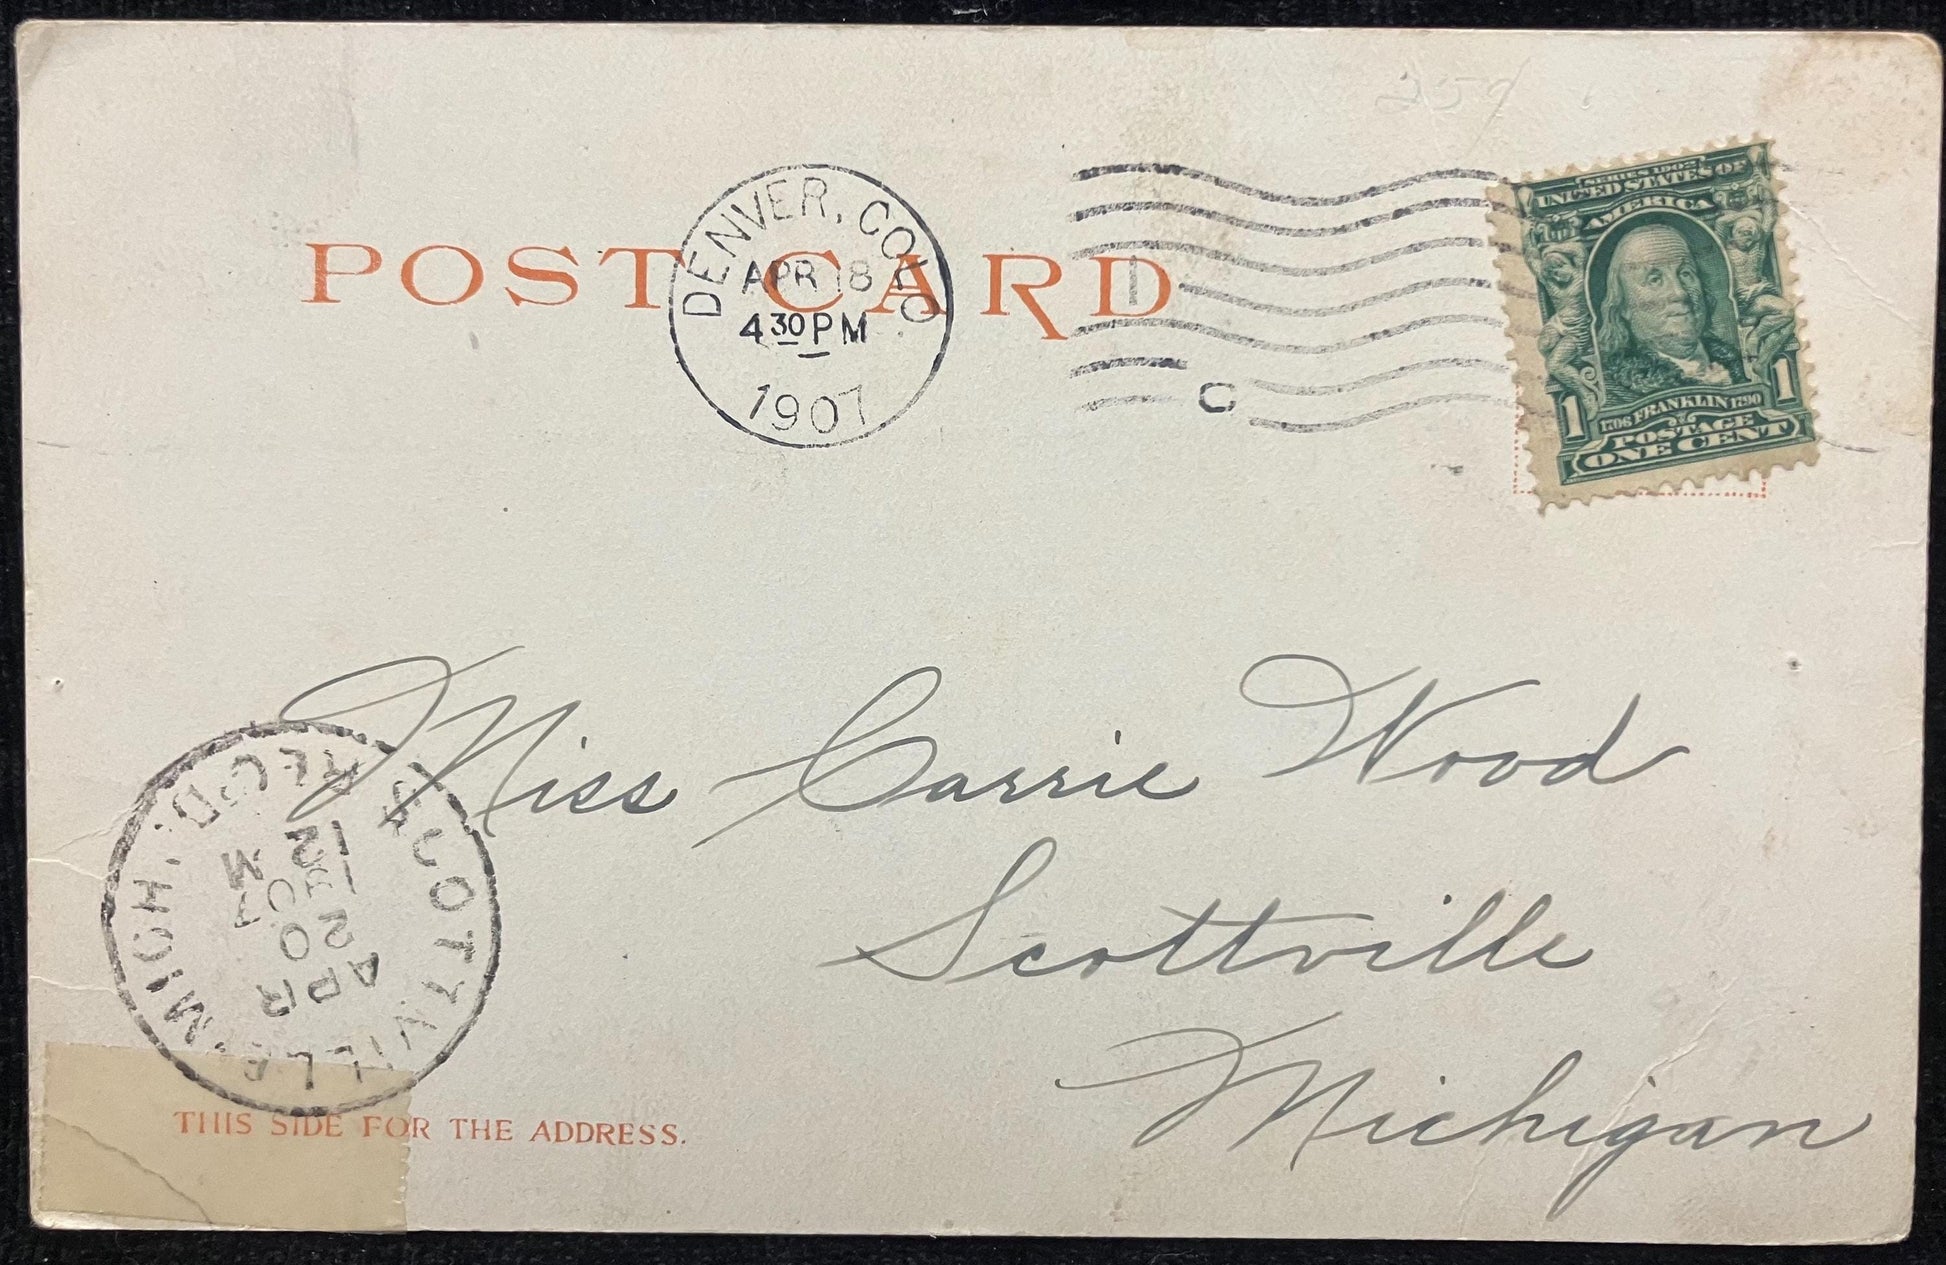 259
POST CARD
DENVER, COLO
APR 18
4 30 PM
1907
C
SERIES 1902
UNITED STATES OF
AMERICA
1706 FRANKLIN 1790
POSTAGE
ONE CENT
1 1
Miss Carrie Wood
Scottville
Michigan
SCOTTVILLE, MICH.
REC'D.
APR
20
12 M
THIS SIDE FOR THE ADDRESS.